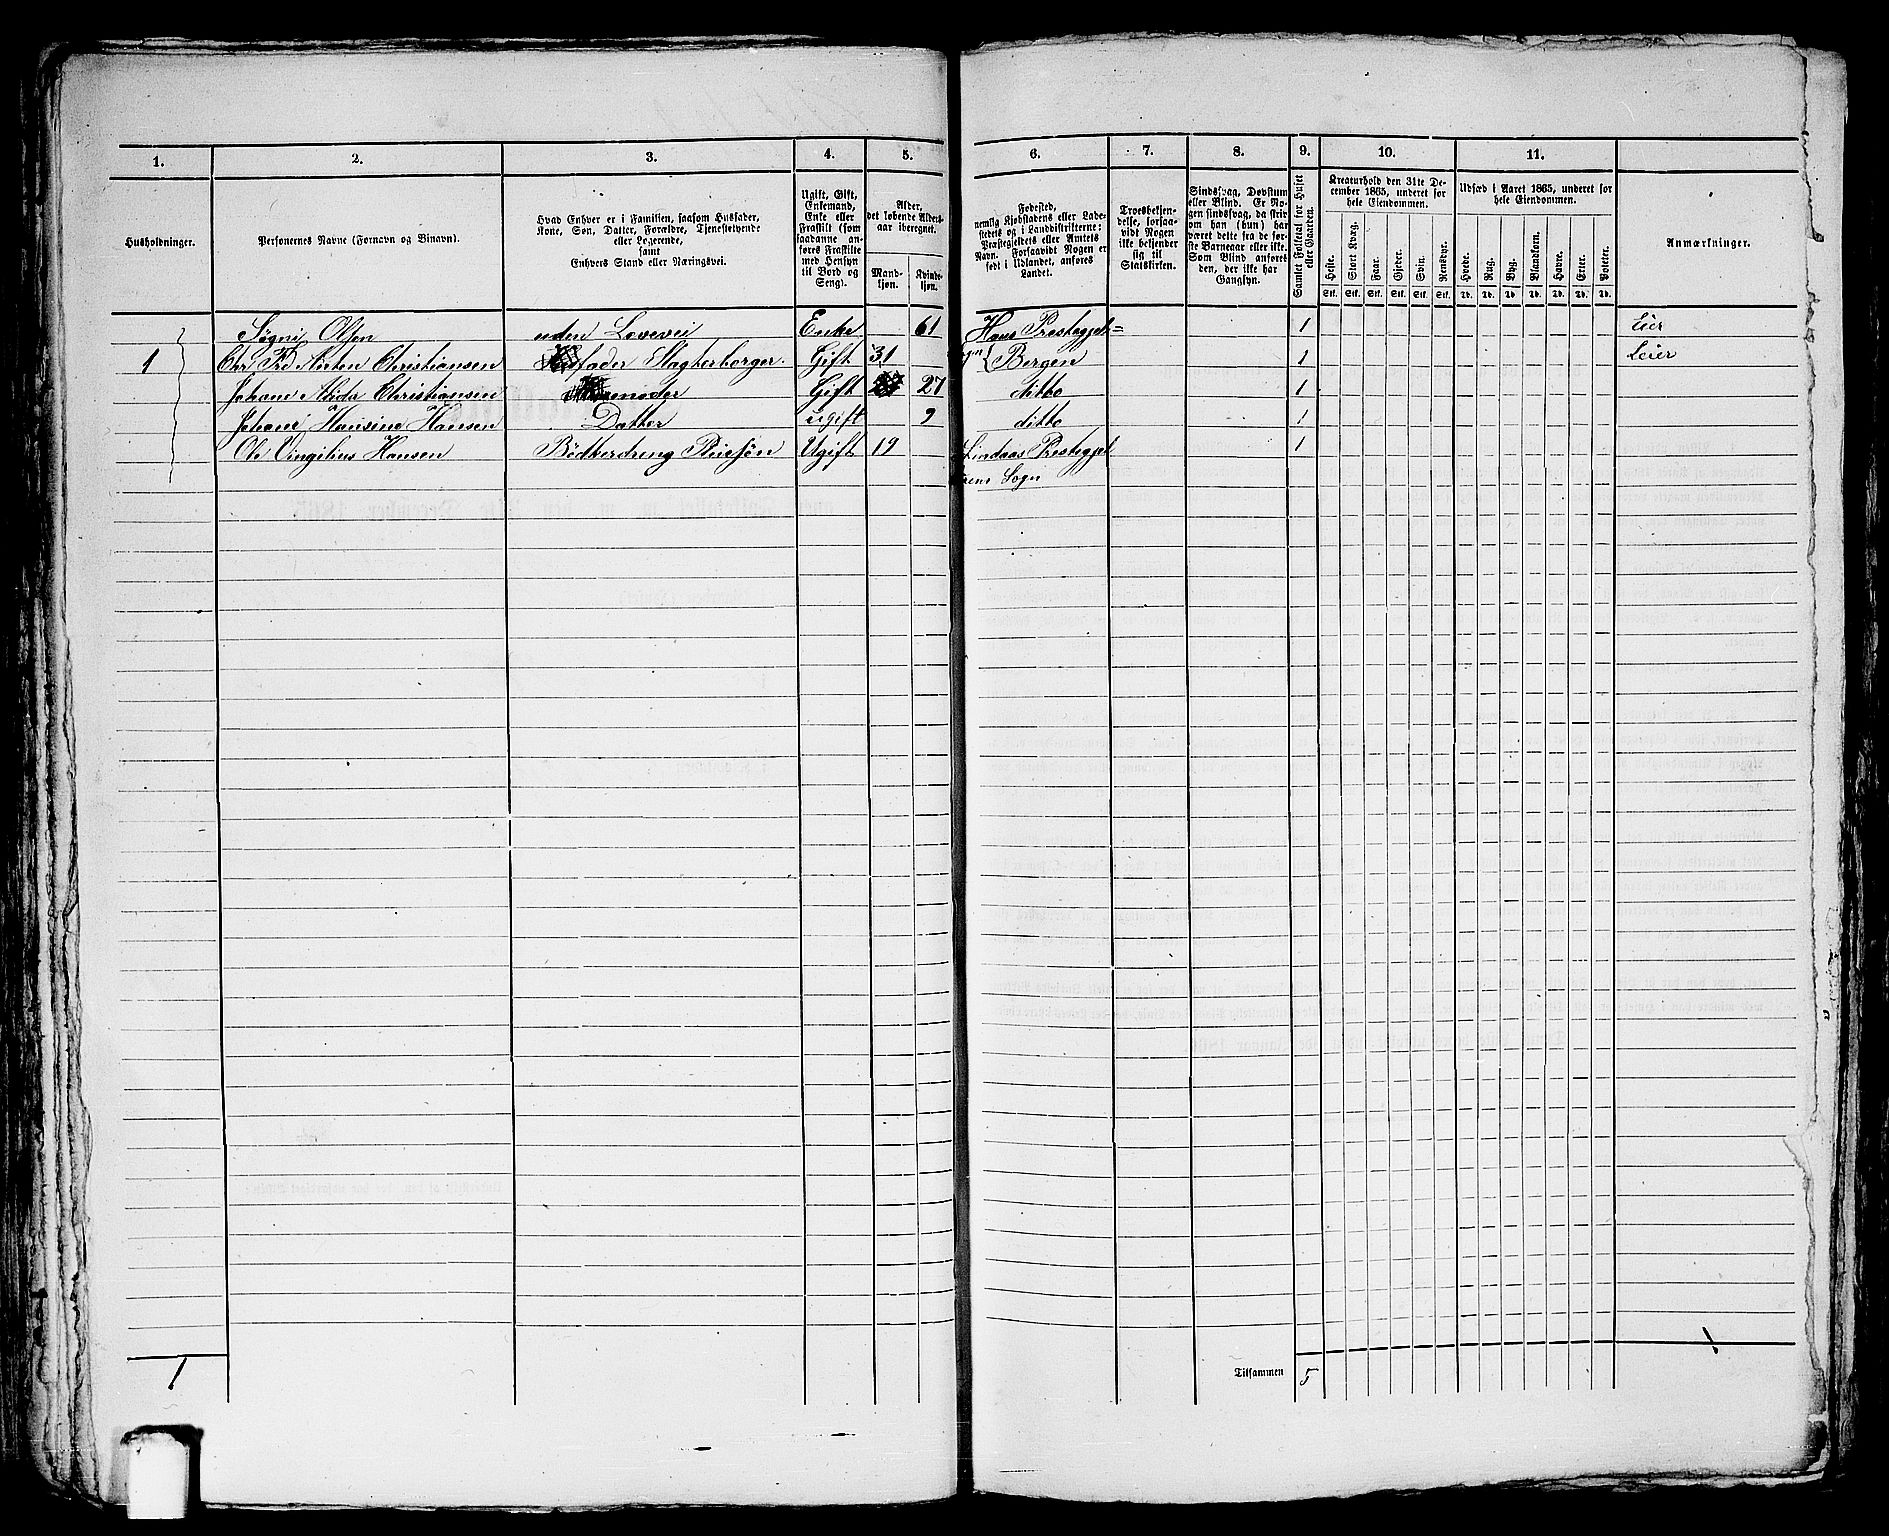 1. 2. 3. 4. 5. 6. 7. 8. 9. 10. 11.
Husholdninger.
Personernes Navne (Fornavn og Binavn).
Hvad Enhver er i Familien, saasom Husfader,
Kone, Søn, Datter, Forældre, Tjenestetyende
eller Logerende,
samt
Enhvers Stand eller Næringsvei.
Ugift, Gift,
Enkemand,
Enke eller
Fraskilt (som
saadanne an-
føres Fraskilte
med Hensyn
til Bord og
Seng).
Alder,
det løbende Alders-
aar iberegnet.
Mand-
kjøn.
Kvinde-
kjøn.
Fødested,
nemlig Kjøbstadens eller Lade-
stedets og i Landdistrikterne:
Præstegjeldets eller Amtets
Navn. Forsaavidt Nogen er
født i Udlandet, anføres
Landet.
Troesbekjen-
delse, forsaa-
vidt Nogen
ikke bekjender
sig til
Statskirken.
Sindssvag, Døvstum
eller Blind. Er No-
gen sindssvag, da skriv
om han (hun) har
været dette fra de før-
ste Barneaar eller ikke.
Som Blind anføres
den, der ikke har
Gangsyn.
Samlet Folketal for Huset
eller Gaarden.
Kreaturhold den 31te De-
cember 1865, underet for
hele Eiendommen.
Heste. Stort Kvæg. Faar. Gjeder. Svin. Rensdyr.
Stk. Stk. Stk. Stk. Stk. Stk.
Udsæd i Aaret 1865, underet for
hele Eiendommen.
Hvede. Rug. Byg. Blandkorn. Havre. Erter. Poteter.
Td. Td. Td. Td. Td. Td. Td.
Anmærkninger.
Søgni Olsen uden Levevei Enke 61 Haus Prestegjel= 1 Eier
1 Chr. Frd Anton Christiansen fader Slagterborger. Gift 31 Bergen 1 Leier
Johane Alida Christiansen moder Gift 27 ditto 1
Johane Hansine Hansen Datter ugift 9 ditto 1
Ole Vingilius Hansen Bødkerdreng Ugift 19 Lindaas Prestegjel 1
Sogn
1 Tilsammen 5 1